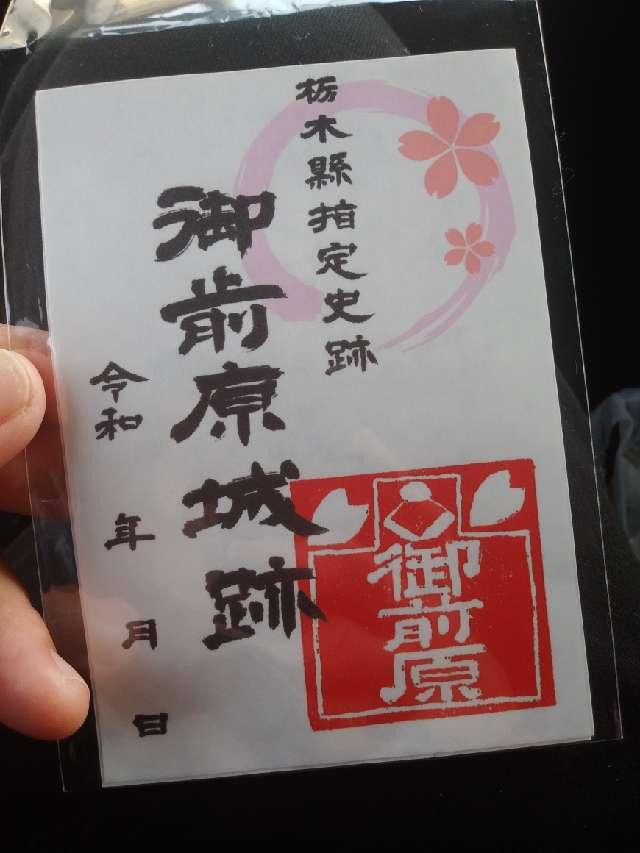 栃木縣指定史跡
御前原城跡
令和 年 月 日
御前原